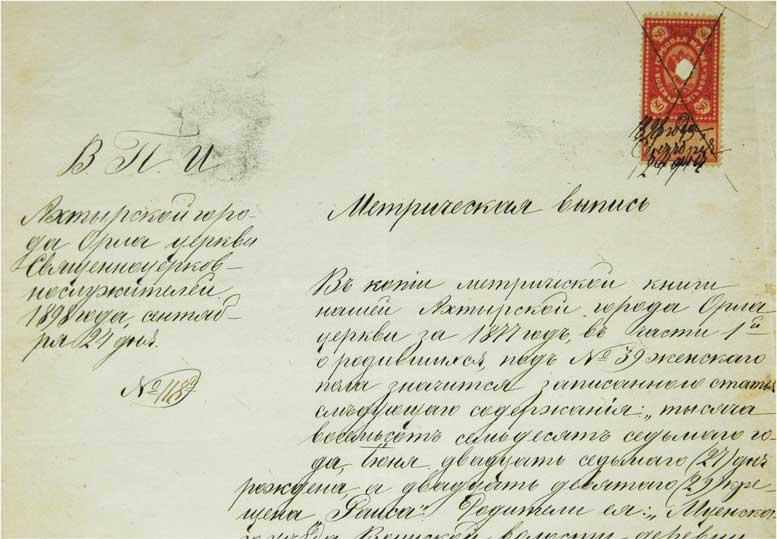 ГЕРБОВАЯ МАРКА
80
80
80
80
В. П. И
Ахтырской горо-
да Орла церкви
Священноцерков-
нослужителей.
1898 года, сентяб-
ря 24 дня.
№ 118
Метрическая выпись
Въ копіи метрической книги
нашей Ахтырской города Орла
церкви за 1877 годъ, въ части 1й
о родившихся, подъ № 39 женскаго
пола значится записанного статья
слѣдующаго содержанія: „тысяча
восемьсотъ семьдесятъ седьмаго го-
да, Іюня двадцать седьмаго (27) дня
рождена, а двадцать девятаго (29) кре-
щена Раиса". Родители ея: „Мценска-
го уѣзда волости деревни